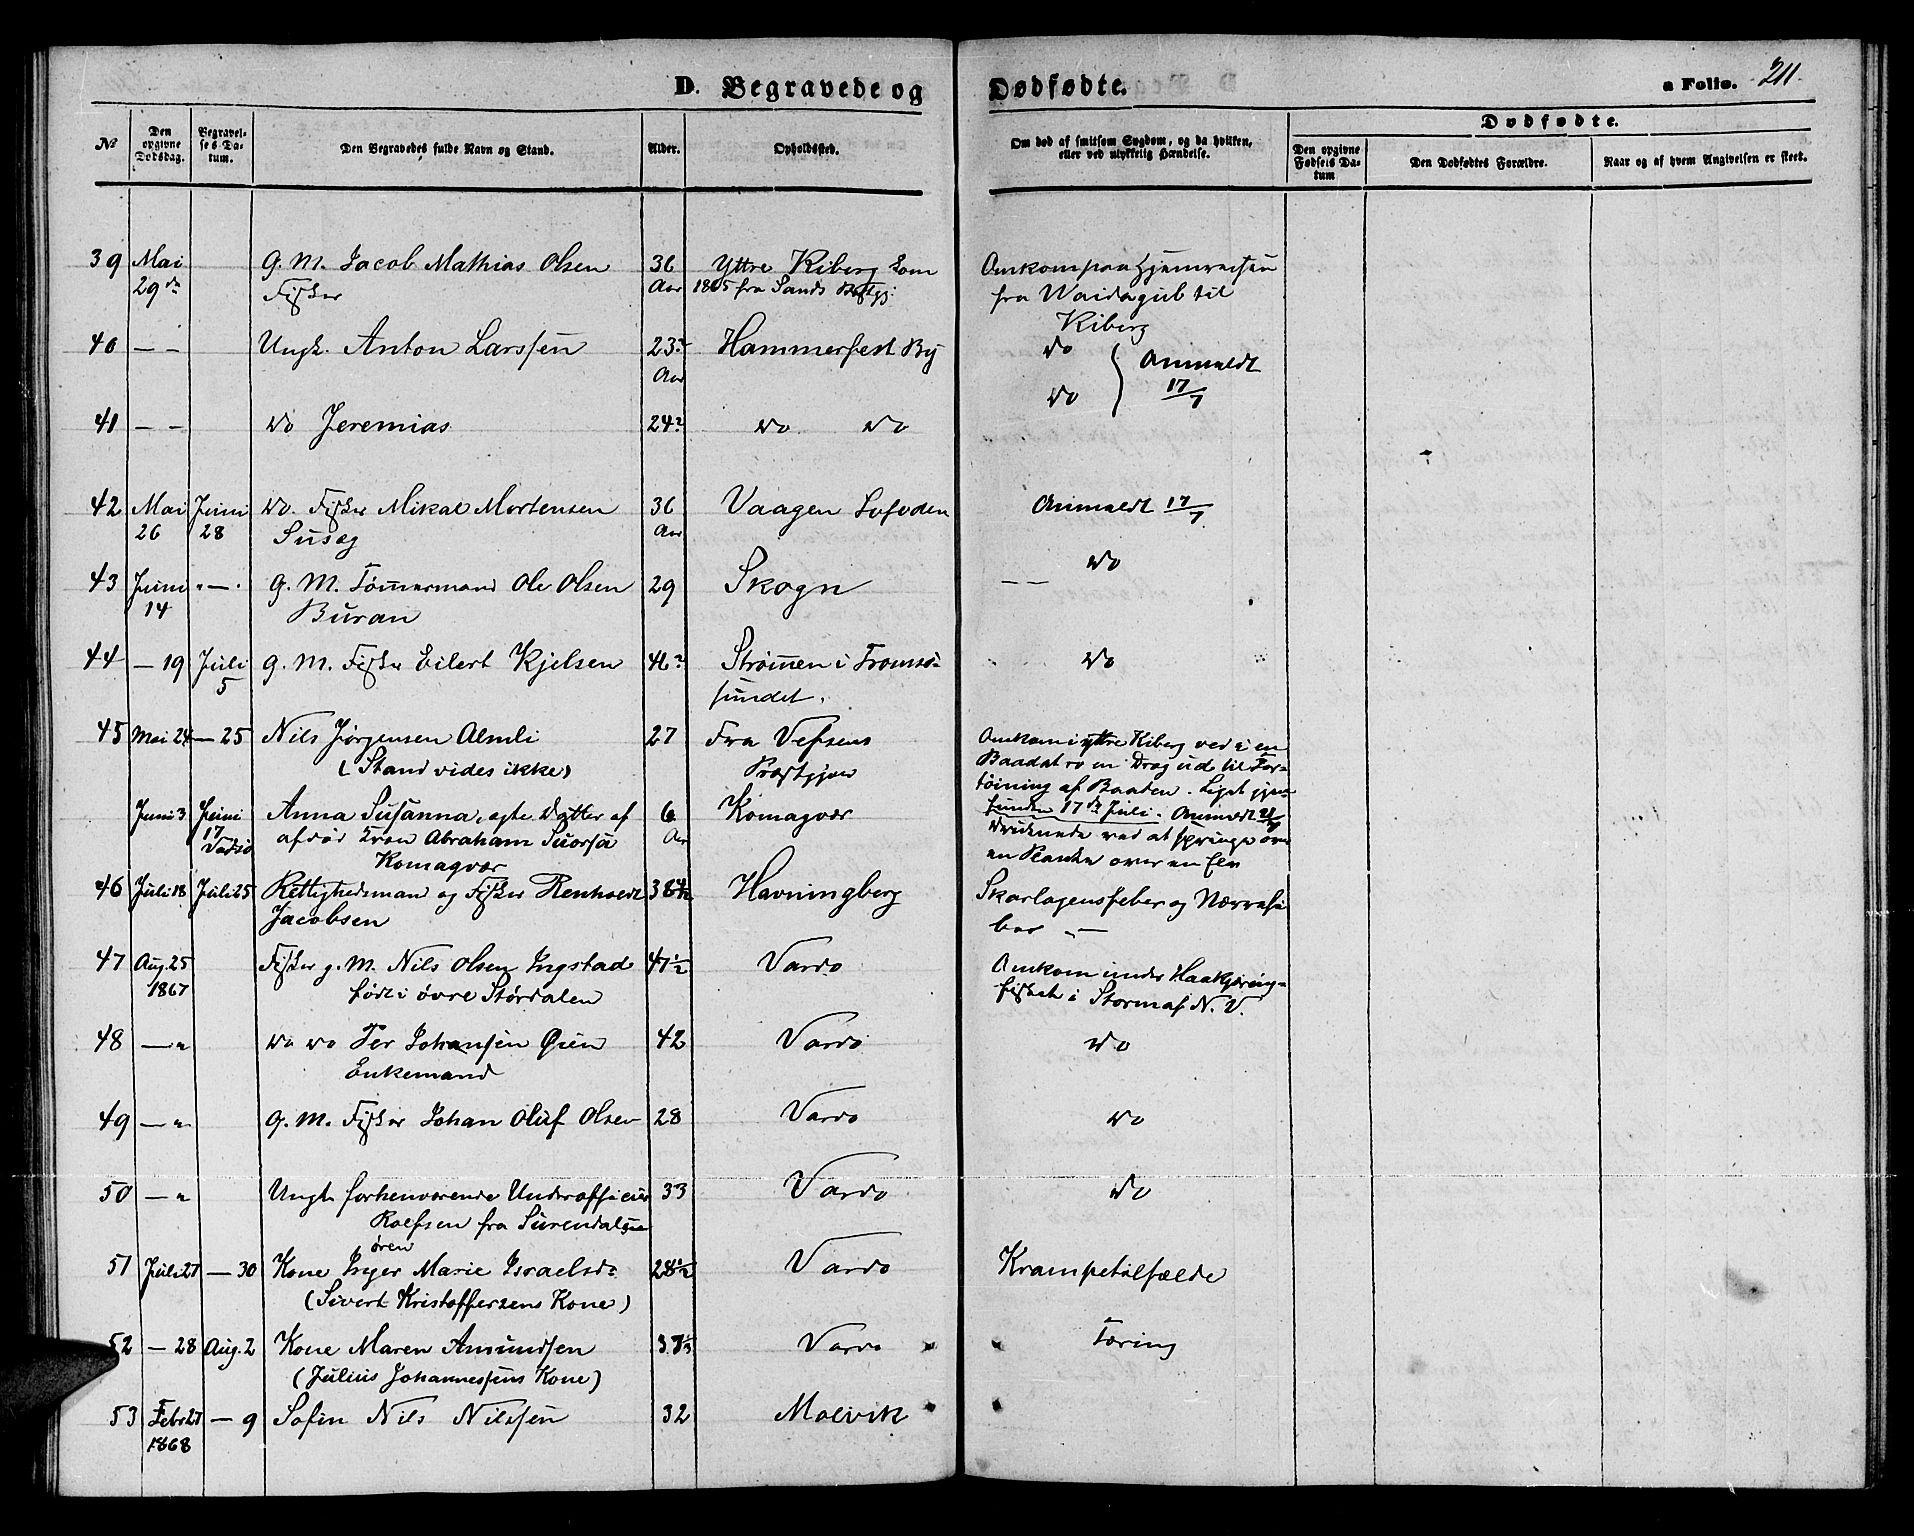 D. Begravede og Dødfødte.
a Folio. 211.
No
Den opgivne Dødsdag.
Begravelses Datum.
Den Begravedes fulde Navn og Stand.
Alder.
Opholdssted.
Om død af smitsom Sygdom, og da hvilken, eller ved ulykkelig Hændelse.
Dødfødte.
Den opgivne Fødsels Datum
Den Dødfødtes Forældre.
Naar og af hvem Angivelsen er skeet.
39 Mai G. M. Jacob Mathias Olsen 36 Yttre Kiberg kom Omkom paa Hjemreisen
29de Fisker Aar 1865 fra Sands Præstgj: fra Waidagub til
Kiberg
40 — — Ungk. Anton Larssen 23 Hammerfest By do
Aar Anmeldt
17/7
41 — — do Jeremias 24 do do do
42 Mai Juni do. Fisker Mikal Mortensen 36 Vaagen Lofoden Anmeldt 17/7
26 28 Susæg Aar
43 Juni " — " G. M. Tømmermand Ole Olsen 29 Skogn — — do
14 Buran
44 — 19 Juli G. M. Fisker Eilert Kjelsen Strømen i Tromsø- do
5 sundet.
45 Mai 24 — 25 Nils Jørgensen Almli 27 Fra Vefsens Omkom i yttre Kiberg ved i en
(Stand vides ikke) Præstgjæld Baad at ro en Dræg ud til For-
tøining af Baaden. Liget gjen-
funden 17de Juli. Anmeldt
Juni 3 Juni Anna Susanna, ægte Datter af 6 Komagvær Druknede ved at springe over
17 Vadsø afdød Qvæn Abraham Suorsa Aar en Planke over en Elv
Komagvær
46 Juli 18 Juli 25 Rettighedsmand og Fisker Renholdt 38 Havningberg Skarlagensfeber og Nervefe
Jacobsen ber — " —
47 Aug. 25 Fisker g. M. Nils Olsen Ingstad 47 1/2 Vardø Omkom under Haakjæring-
1867 født i øvre Størdalen fisket i Storm af N. V.
48 — " do do Per Johansen Øien 42 Vardø do
Enkemand
49 — " G. M. Fisker Johan Oluf Olsen 28 Vardø do
50 — " Ungk. forhenværende Underofficier 33 Vardø do
Rolfsen fra Surendals-
øren
51 Juli 27 — 30 Kone Inger Marie Israelsdr 28 1/2 Vardø Krampetilfælde
(Sivert Kristoffersens Kone)
52 — 28 Aug. 2 Kone Maren Amundsen 37 Vardø Tæring
(Julius Johannessens Kone)
53 Febr 27 — 9 Søfin Nils Nilssen 32 Malvik
1868